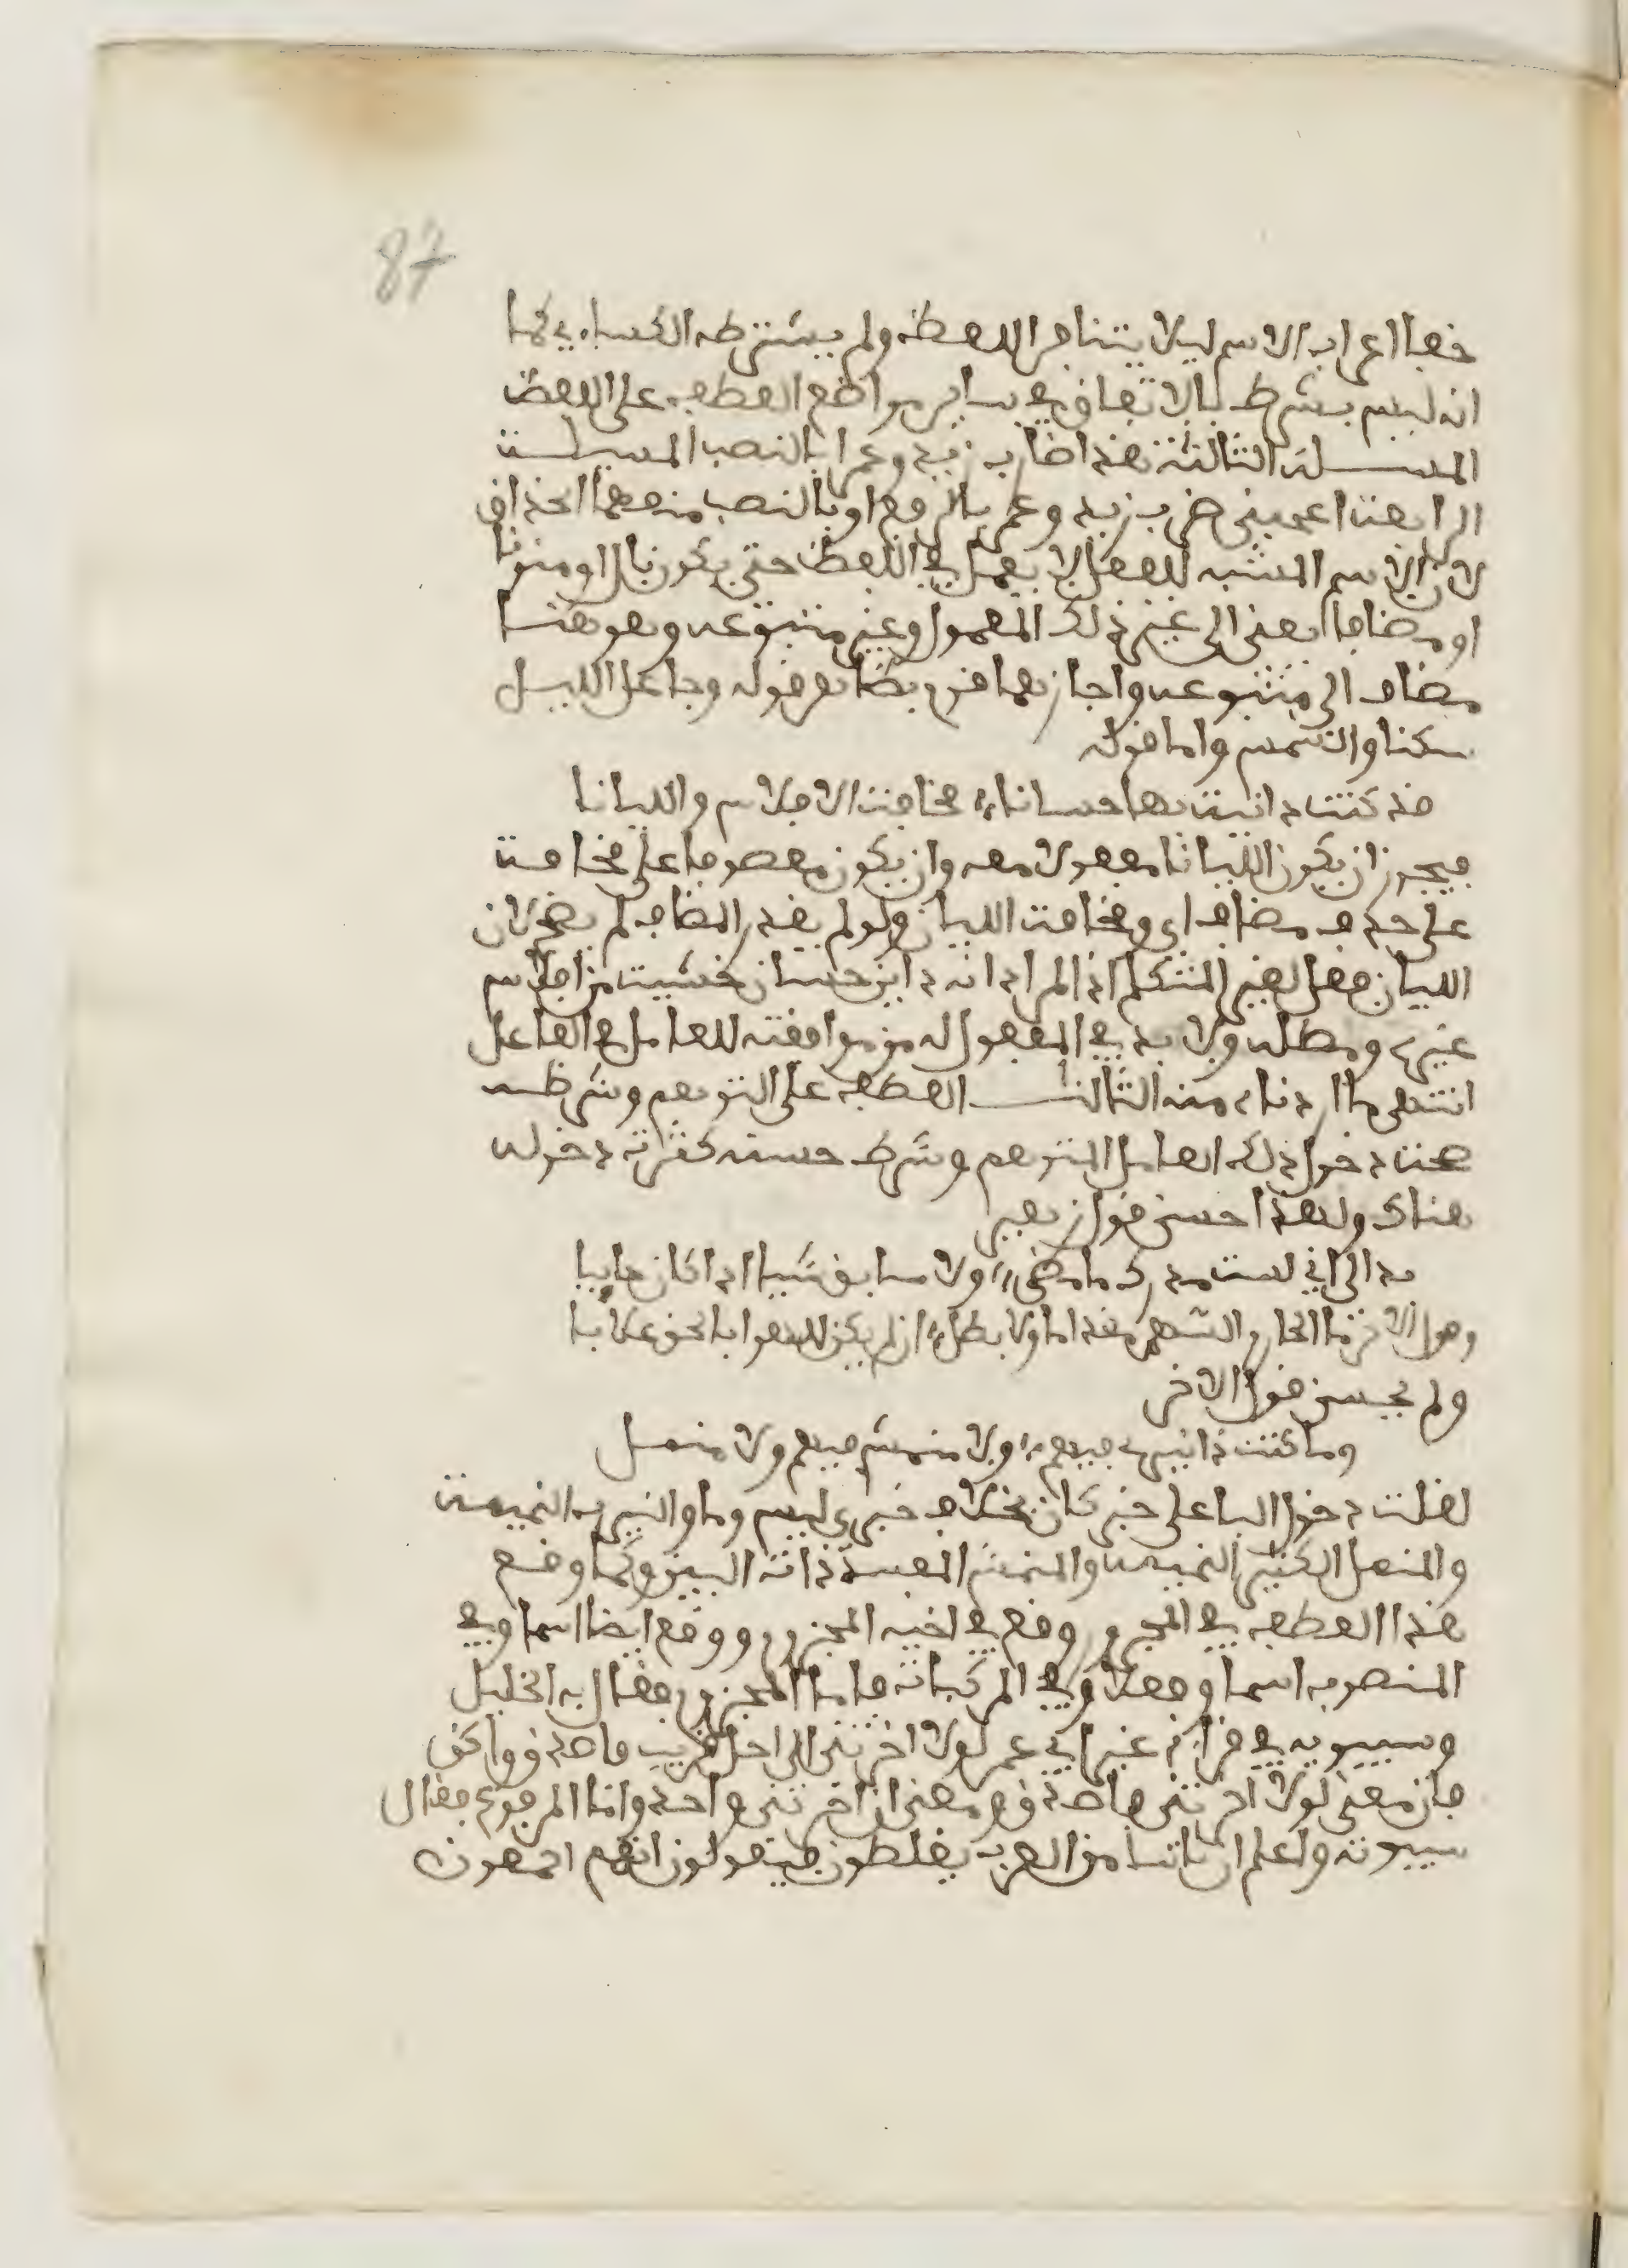 87
خفا اعراب الاسم ليلا يتنافر اللفظ ولم يشترطه الكساءي كما
انه ليس بشرط بالاتفاق في ساير مواضع العطف على اللفظ
المسئلة الثالثة هذا ضارب زيد وعمرا بالنصب المسئلة
الرابعة اعجبني ضرب زيد وعمر بالرفع او بالنصب منعهما الحذاق
لان الاسم المشبه للفعل لا يعمل في اللفظ حتى يكون بال او منونا
او مضافا يعني الى غير ذلك المعمول وغير متبوعه وهو هنا
مضاف الى متبوعه واجازهما قوم بظاهر قوله وجاعل الليل
سكنا والشمس واما قوله
قد كنت داينت بها حسانا مخافة الافلاس والليانا
فيجوز ان يكون الليانا مفعولا معه وان يكون معطوفا على مخافة
على حذف مضاف اي ومخافة الليان ولو لم يقدر المضاف لم يصح لان
الليان فعل لغير المتكلم اذ المراد انه داين حسان خشيت من افلاس
غيره ومطله ولا بد في المفعول له من موافقته للعامل في الفاعل
انتهى ما اردناه منه الثالث العطف على التوهم وشرطه
صحة دخول ذلك العامل المتوهم وشرط حسنه كثرة دخوله
هناك ولهذا حسن قول زهير
بدا لي اني لست مدرك ما مضى ولا سابق شيا اذا كان جاييا
وقول الاخر ما الحازم الشهم مقداما ولا بطل ان لم يكن للهوا بالحق غلابا
ولم يحسن قول الاخر
وما كنت ذا نيرب فيهم ولا منمش فيهم ولا منمل
لقلة دخول البا على خبر كان بخلاف خبري ليس وما والنيرب النميمة
والمنمل الكثير النميمة والمنمش المفسد ذات البين وكما وقع
هذا العطف في المجرور وقع في اخيه المجزوم ووقع ايضا اسما وفي
المنصوب اسما وفعلا وفي المركبات فاما المجزوم فقال به الخليل
وسيبويه في قراءة غير ابي عمر لولا اخرتني الى اجل قريب فاصدق واكن
فان معنى لولا اخرتني فاصدق ومعنى ان اخرتني واحد واما المرفوع فقال
سيبويه واعلم ان ناسا من العرب يغلطون فيقولون انهم اجمعون